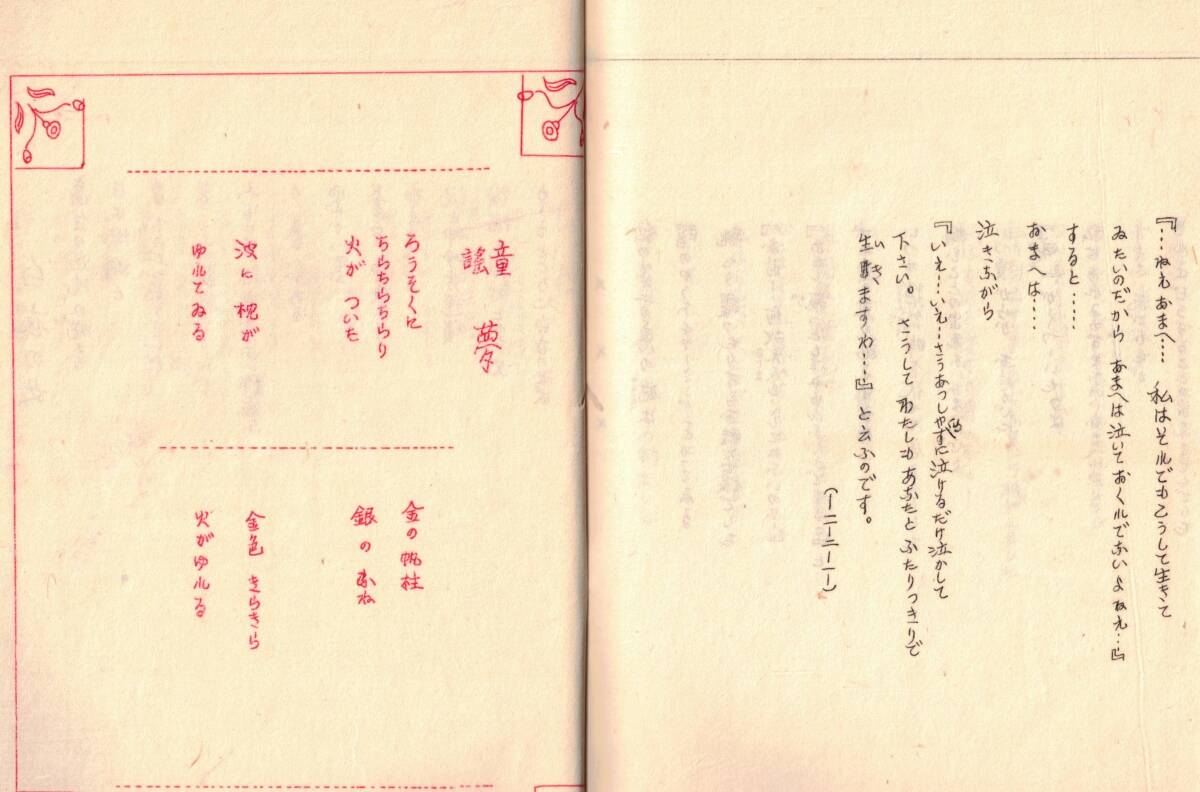 『…ねえ おまへ… 私はそれでもこうして生きて
ゐたいのだから おまへは泣いておくれでないよ ねえ…』
すると……
おまへは……
泣きながら
『いえ…いえ…さうおっしゃらずに泣けるだけ泣かして
下さい。さうして わたしもあなたと ふたりつきりで
生きますわ…』と云ふのです。
(一二・二・一一)
童謡 夢
ろうそくに
ちらちらちらり
火が ついた
波に 枕が
ゆれて ゐる
金の 帆柱
銀の ふね
金色 きらきら
火がゆれる